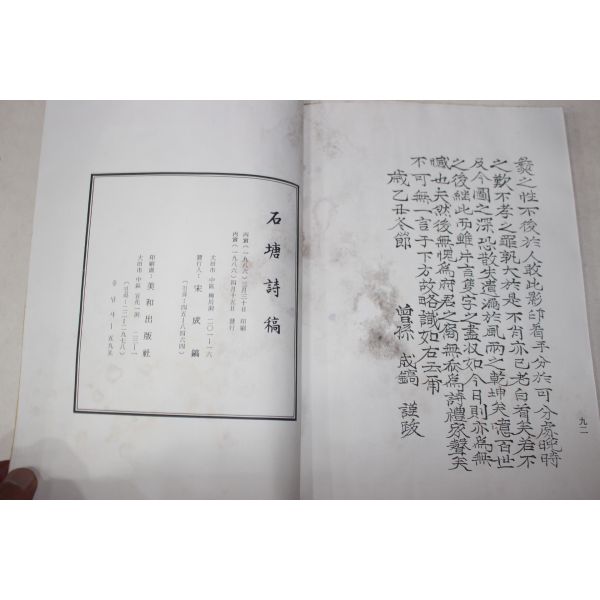 彝之性不後於人敢此影印看乎分於可分處晩時
之歎不孝之罪孰大於是不肖亦已老白首矣若不
及今圖之深恐散失遺漏於風雨之乾坤矣噫百世
之後繼此而雖片言隻字之盡收如今日則亦爲無
憾也夫然後無愧爲府君之裔無忝爲詩禮家聲矣
不可無一言于下方故略識如右云爾
歲乙丑冬節
曾孫 成鎬 謹跋
九一
石塘詩稿
丙寅(一九八六)三月三十日 印刷
丙寅(一九八六)四月十五日 發行
大田市 中區 二〇一–一六
發行人: 宋成鎬
(전화: 四五–八四六四)
印刷處: 美和出版社
大田市 中區 宣化一洞